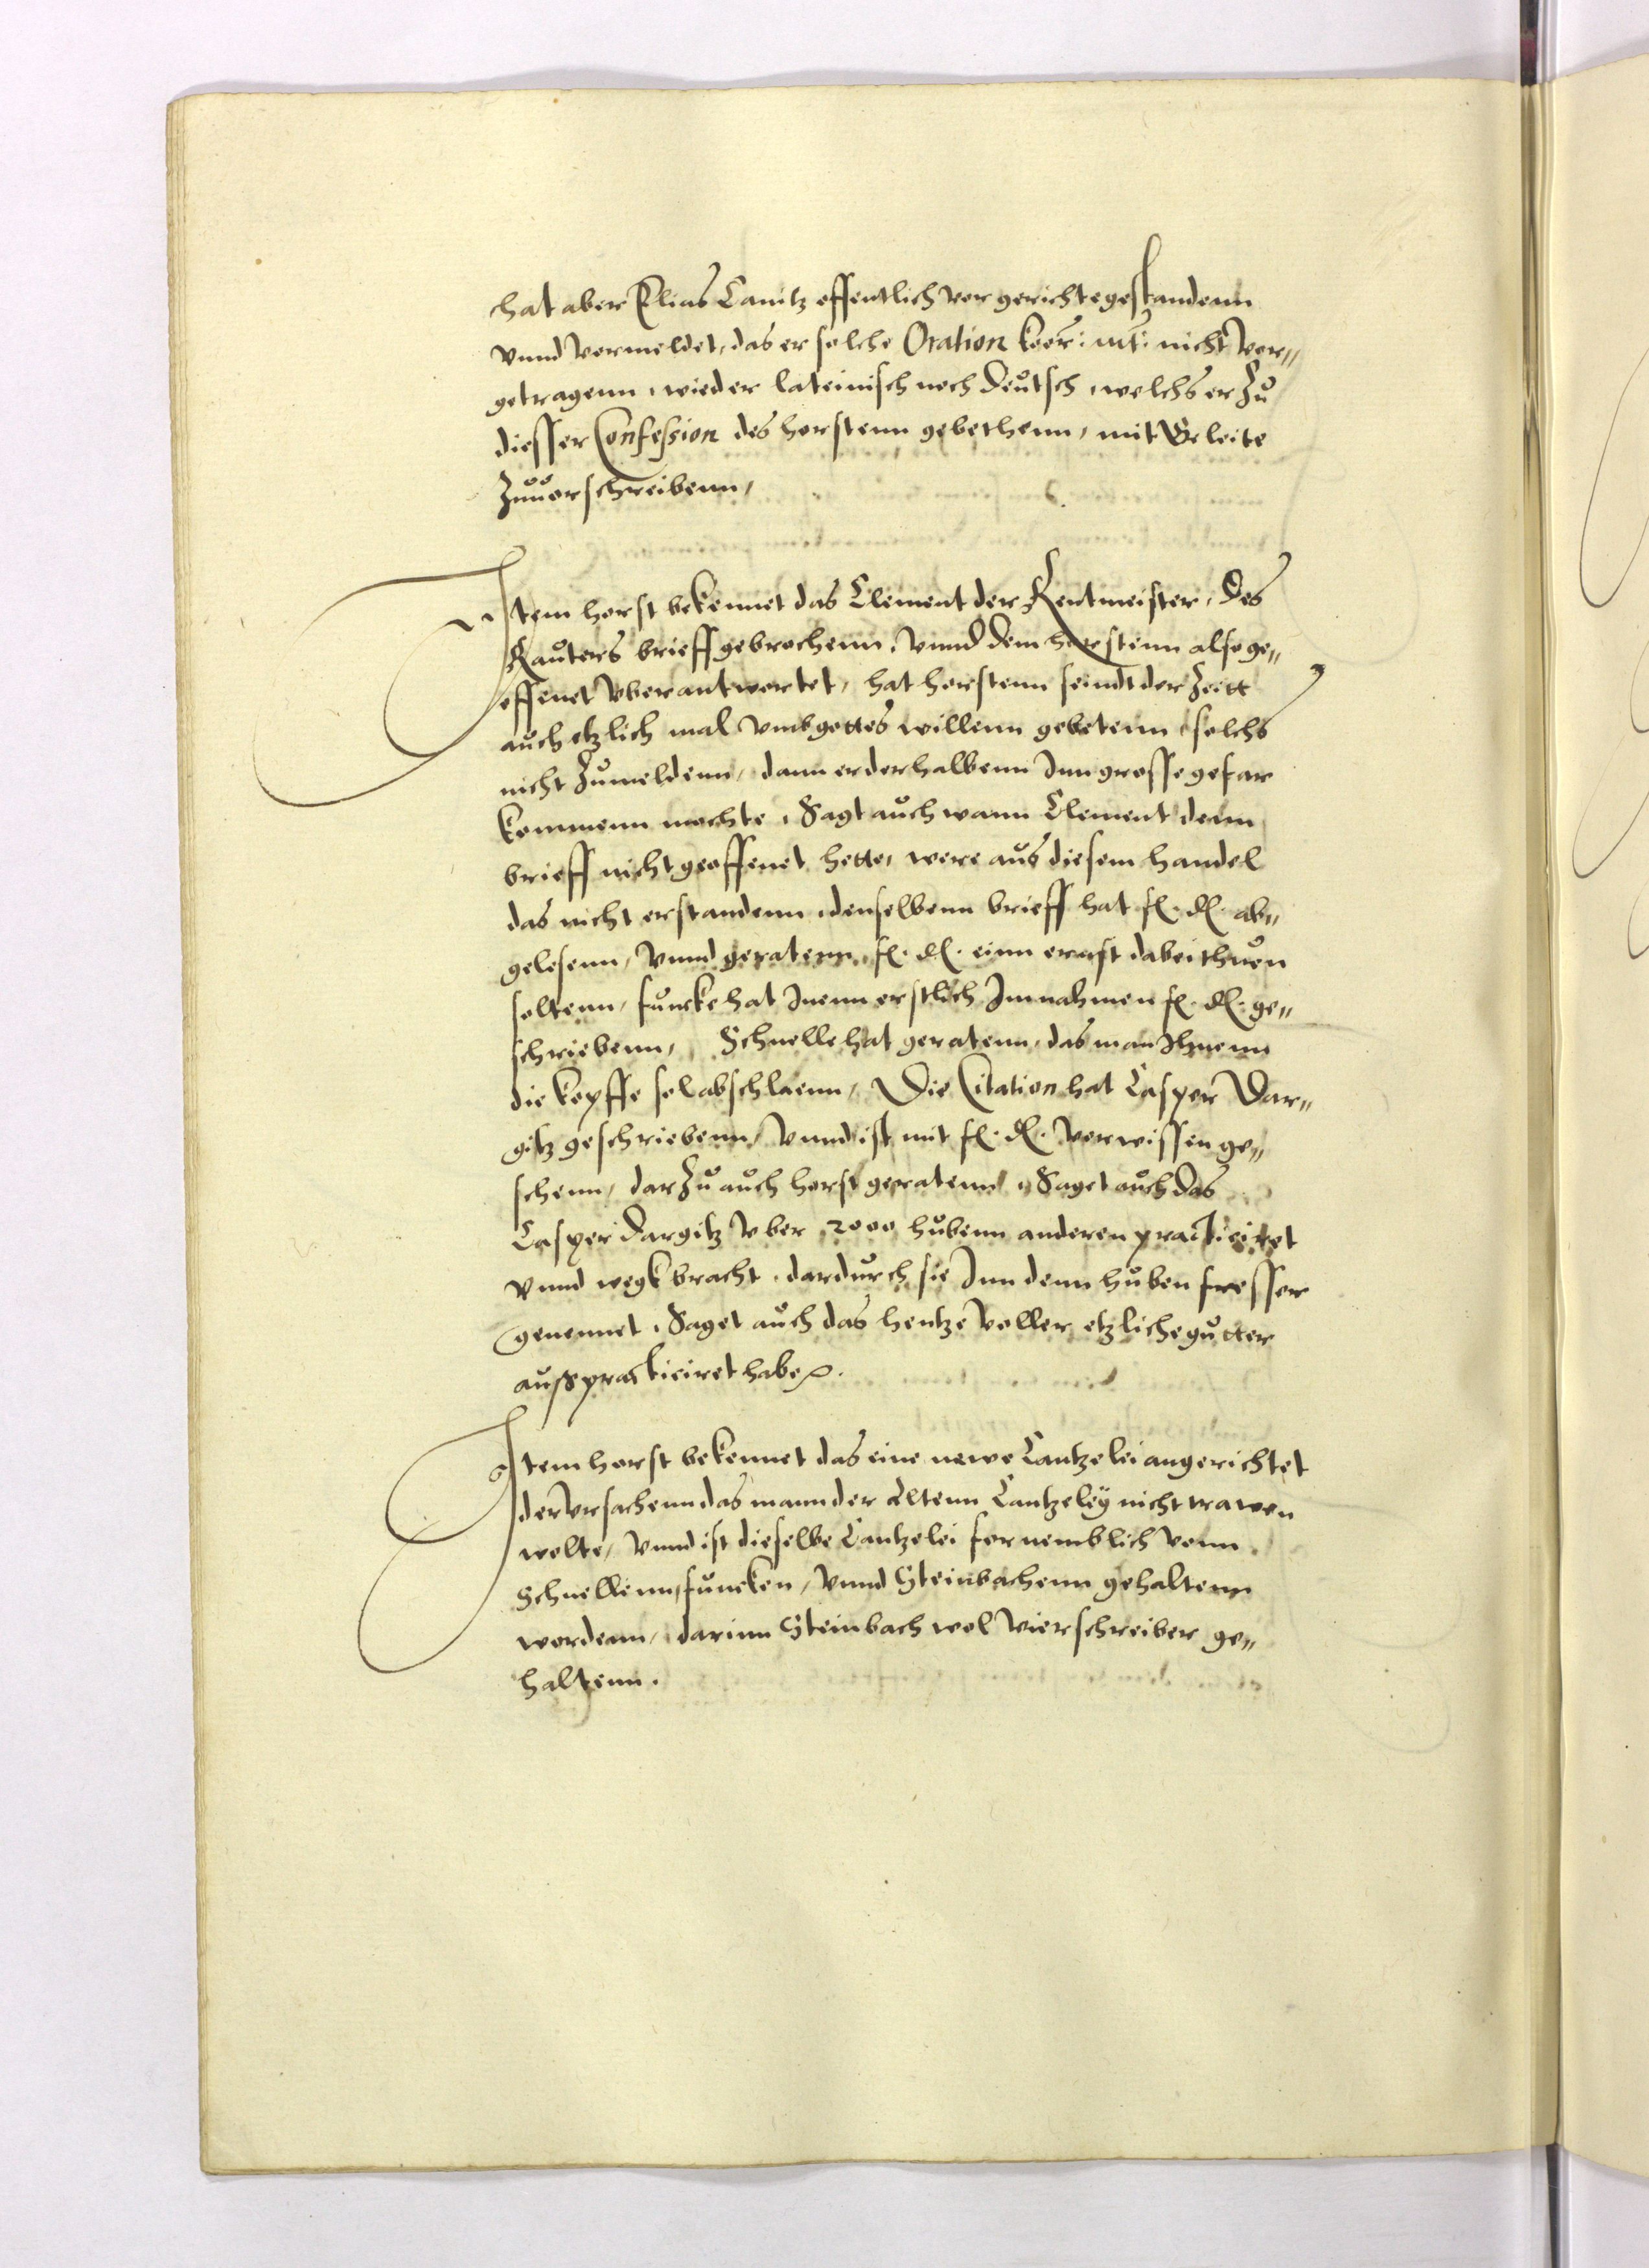 hat aber Elias Canitz offentlich vor gerichte gestandenn
vnnd vormeldet, das er solche Oration koer: mt: nicht vor„
getragenn, wieder lateinisch noch deutsch, welchs er zu
diesser Confession des horstenn gebethenn, mit
zuuorschreibenn,
Item horst bekennet das Clement der Rentmeister, des
Rauters brieff gebrochenn, vnnd dem horstenn also ge„
offenet vberantwortet, hat horstenn seindt der Zeitt
auch etzlich mal vmb gottes willenn gebetenn solchs
nicht zumeldenn, dann er derhalbenn Inn grosse gefar
kommenn mochte, Sagt auch wann Clement denn
brieff nicht geoffenet hette, were aus diesem handel
das nicht erstandenn, denselbenn brieff hat f. d. ab„
gelesenn, vnnd geratenn, f. d. einn ernst dabei thuen
soltenn, funcke hat Inenn erstlich Im nahmen f. d. ge„
schriebenn, Schnelle hat geratenn, das man Ihnenn
die kopffe sol abschlaenn, Die Citation hat Casper Dar„
gitz geschriebenn, vnnd ist mit f. d. vorwissen ge„
schenn, dar zu auch horst geratenn, Saget auch das
Casper Dargitz vber 2000 hubenn anderen practiciret
vnnd wegk bracht, dardurch sie Inn denn huben fresser
genennet, Saget auch das hentze voller etzliche gutter
ausspracticiret habe.
Item horst bekennet das eine newe Cantzelei angerichtet
der vrsachenn das mann der Altenn Cantzeley nicht trawen
wolte, vnnd ist dieselbe Cantzelei fornemblich vonn
Schnellenn, funcken, vnnd Steinbachenn gehaltenn
wordenn, darinn Steinbach wol vier schreiber ge„
haltenn.